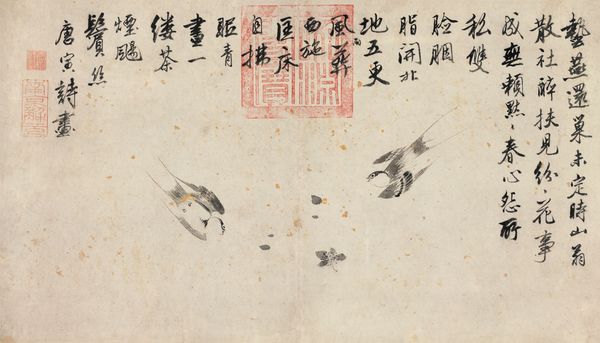 藝燕還巢未定時山翁
散社醉扶兒紛〻花事
成無賴默〻春心怨所
私雙
臉胭
脂開北
地五更
風雨葬
西施
匡床
自拂
眠青
晝一
縷茶
煙颺
鬢絲
唐寅詩畫